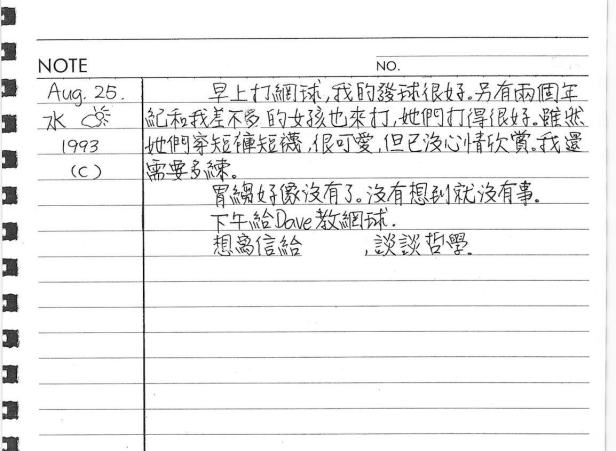 NOTE NO.
Aug. 25. 早上打網球,我的發球很好。另有兩個年
水 紀和我差不多的女孩也來打,她們打得很好。雖然
1993 她們穿短褲短襪,很可愛,但已沒心情欣賞。我還
(C) 需要多練。
胃繃好像沒有了。沒有想到就沒有事。
下午給Dave教網球.
想寫信給 ,談談哲學.